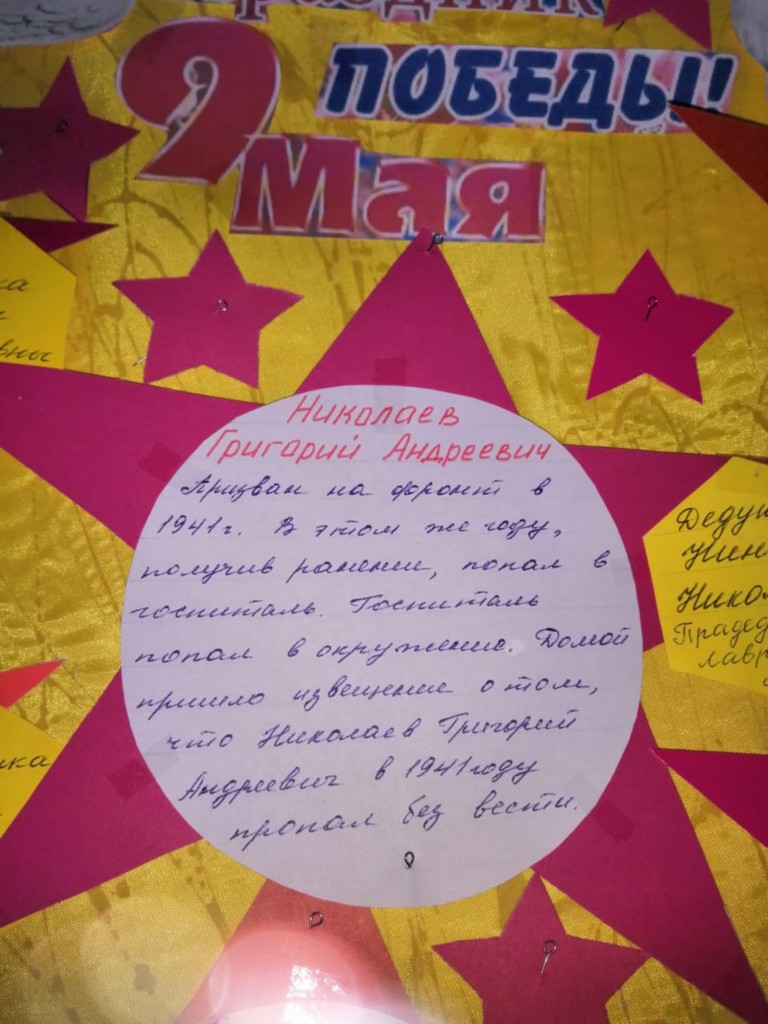 ПРАЗДНИК
ПОБЕДЫ!
9 Мая
Николаев
Григорий Андреевич
Призван на фронт в
1941г. В этом же году,
получив ранение, попал в
госпиталь. Госпиталь
попал в окружение. Домой
пришло извещение о том,
что Николаев Григорий
Андреевич в 1941 году
пропал без вести.